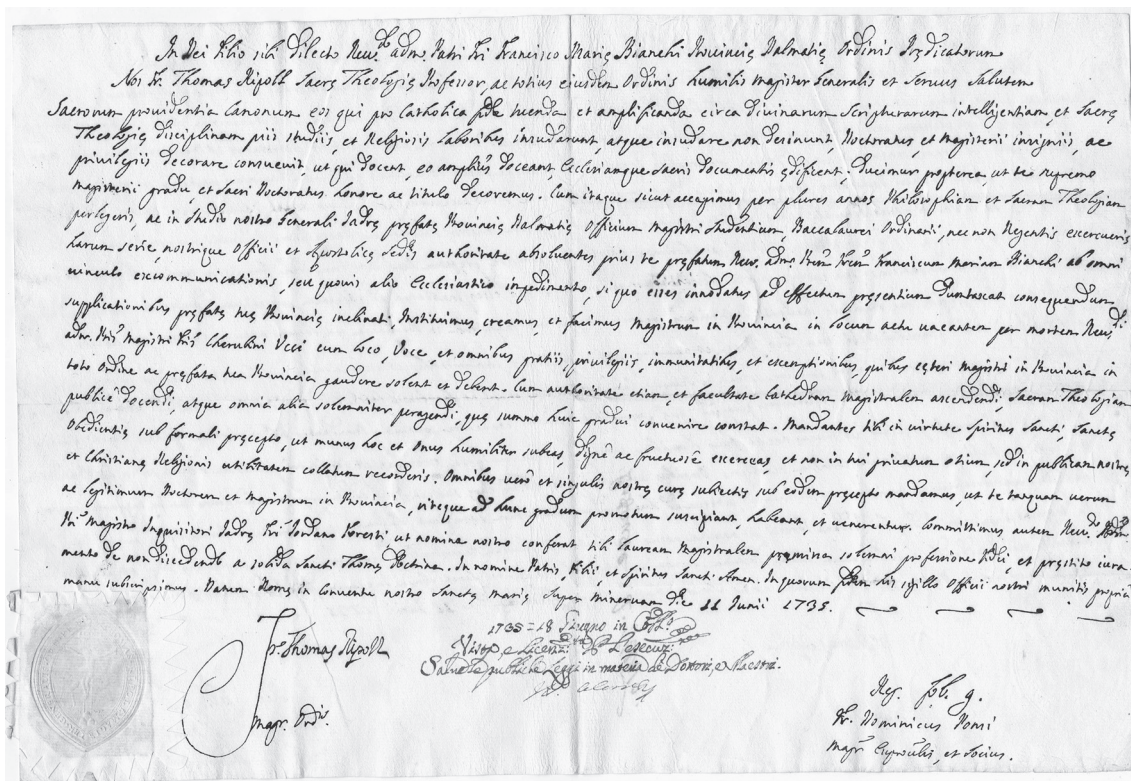 In Dei Filio sibi Dilecto Reu.do adm. Patri Fri Francisco Marię Bianchi Prouincię Dalmatię Ordinis Prędicatorum
Nos Fr. Thomas Ripoll Sacrę Theologię Professor, ac totius eiusdem Ordinis humilis Magister Generalis et Seruus Salutem
Sacrorum prouidentia Canonum eos qui pro Catholica fide tuenda et amplificanda circa diuinarum Scripturarum intelligentiam et Sacrę
Theologię disciplinam piis studiis, et Religiosis laboribus insudarunt, atque insudare non desinunt, Doctoratus, et magisterii insigniis, ac
priuilegiis decorare consueuit, ut qui docent, eo amplius doceant Ecclesiamque sacris documentis ędificent. Ducimur propterea ut te supremo
magisterii gradu, et Sacri Doctoratus honore ac titulo decoremus. Cum itaque sicut accepimus per plures annos Philosophiam et Sacram Theologiam
perlegeris, ac in Studio nostro Generali Iadrę pręfatę Prouincię Dalmatię Officium magistri Studentium, Baccalaurei Ordinarii, nec non Regentis exercueris
harum serie, nostrique Officii et Apostolicę Sedis authoritate absoluentes prius te pręfatum Reu. adm. Prem Frem Franciscum Mariam Bianchi ab omni
uinculo excommunicationis, seu quouis alio Ecclesiastico impedimento, si quo esses innodatus ad effectum pręsentium dumtaxat consequendum,
supplicationibus pręfatę tuę Prouincię inclinati, Instituimus, creamus, et facimus Magistrum in Prouincia in locum actu uacantem per mortem Reu.di
adm. Pris Magistri Fris Cherubini Ucci cum loco, Voce, et omnibus gratiis, priuilegiis, immunitatibus, et exemptionibus quibus cęteri magistri in Prouincia in
toto Ordine ac pręfata tua Prouincia gaudere solent et debent. Cum authoritate etiam, et facultate Cathedram magistralem ascendendi, Sacram Theologiam
publicè docendi, atque omnia alia solemniter peragendi, quę summo huic gradui conuenire constat. Mandantes tibi in uirtute Spiritus Sancti, Sanctę
Obedientię sub formali pręcepto, ut munus hoc et Onus humiliter subeas, dignè ac fructuosè exerceas, et non in tui priuatum otium sed in publicam nostrę
et Christianę Religionis utilitatem collatum recorderis. Omnibus uerò et singulis nostrę curę subiectis sub eodem pręcepto mandamus, ut te tanquam uerum
ac legitimum Doctorem et Magistrum in Prouincia, riteque ad hunc gradum promotum suscipiant, habeant, et uenerentur. Committimus autem Reu.do adm.
Pri Magistro Inquisitori Iadrę Fri Iordano Foresti ut nomine nostro conferat tibi lauream Magistralem pręmissa solemni professione fidei, et pręstito iura
mento de non discedendo a solida Sancti Thomę Doctrina. In nomine Patris, Filii, et Spiritus Sancti. Amen. In quorum fidem his sigillo Officii nostri munitis propria
manu subscripsimus. Datum Romę in Conuentu nostro Sanctę Marię super Mineruam die 11 Iunii 1735.
1735 = 18 Giugno in
Visto, e Licenz:
Salue le publiche Leggi in materia de Dottori, e Maestri.
Fr. Thomas Ripoll
magr. Ordis.
Reg. fol. 9.
Fr. Dominicus Ponsi
Magr. et Socius.